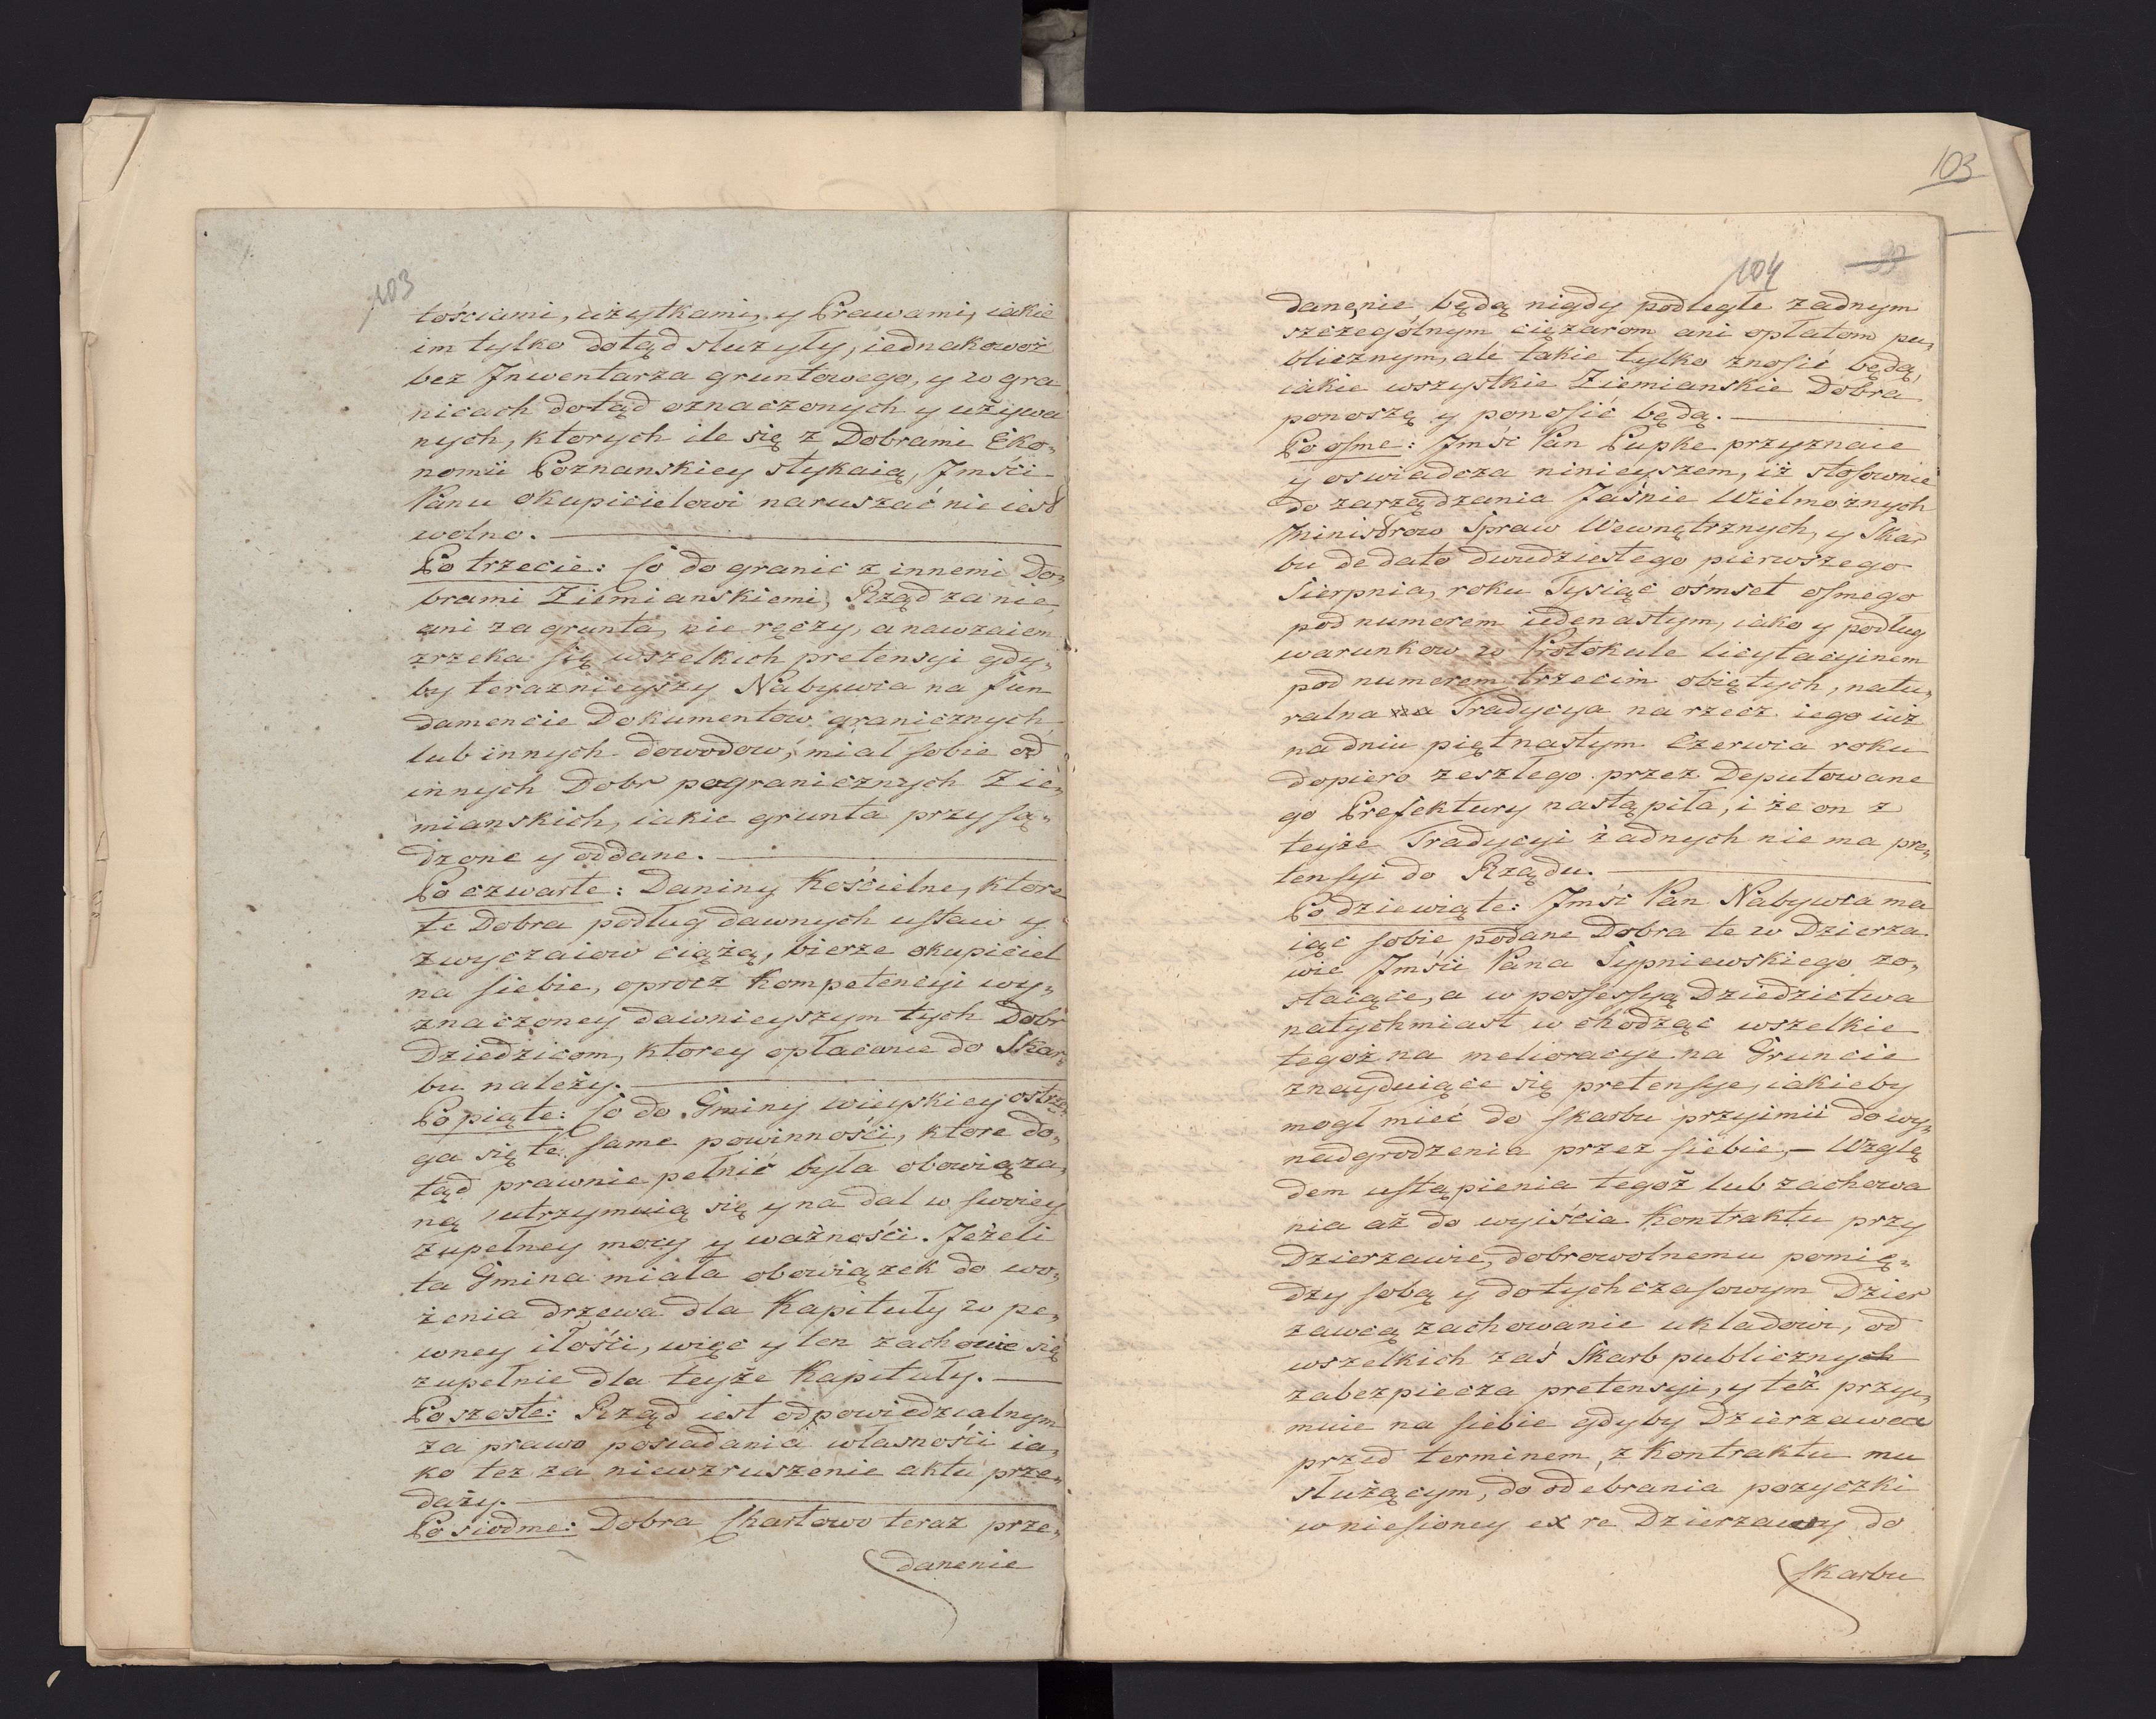 103
tościami, użytkami, y Prawami, iakie
im tylko dotąd służyły, iednakowoż
bez Jnwentarza gruntowego, y w gra
nicach dotąd oznaczonych y używa
nych, ktorych ile się z Dobrami Eko„
nomii Poznanskiey stykaią, Jmści
Panu Okupicielowi naruszać nie iest
wolno.
Po trzecie: Co do granic z innemi Do„
brami Ziemianskiemi, Rząd za nie,
ani za grunta, nie ręczy, a nawzaiem
zrzeka się wszelkich pretensyi gdy„
by teraznieyszy Nabywca na fun
damencie Dokumentow granicznych
lub innych dowodow, miał sobie od
innych Dobr pogranicznych Zie„
mianskich, iakie grunta przysą„
dzone y oddane.
Po czwarte: Daniny Kościelne, ktore
te Dobra podług dawnych ustaw y
zwyczaiow ciążą, bierze okupiciel
na siebie, oprocz Kompetencyi wy„
znaczoney dawnieyszym tych Dobr
Dziedzicom, ktorey opłacanie do Skar„
bu należy.
Po piąte: Co do Gminy wieyskiey ostrze„
ga się te same powinności, ktore do„
tąd prawnie pełnić była obowiąza„
ną, utrzymuią się y na dal w swoiey
zupełney mocy y ważności. Jeżeli
ta Gmina miała obowiązek do wo„
żenia drzewa dla Kapituły w pe„
wney ilości, więc y ten zachowie się
zupełnie dla teyże Kapituły.
Po szoste: Rząd iest odpowiedzialnym
za prawo posiadania własności ia„
ko tez za niewzruszenie aktu prze„
daży.
Po siodme: Dobra Chartowo teraz prze„
danenie
103
104 99
danęnie, będą nigdy podległe żadnym
szczegolnym ciężarom ani opłatom pu„
blicznym, ale takie tylko znosić będą,
iakie wszystkie Ziemianskie Dobra
ponoszą y ponosić będą.
Po osme: Jmść Pan Pupke przyznaie
y oswiadcza ninieyszem, iż stosownie
do zarządzania Jaśnie Wielmożnych
Ministrow Spraw Wewnętrznych, y Skar
bu de dato dwudziestego pierwszego
Sierpnia, roku Tysiąc ośmset osmego
pod numerem iedenastym, iako y podług
warunkow w Protokule licytacyinem
pod numerem trzecim obiętych, natu„
ralna Tradycya na rzecz iego iuż
na dniu piętnastym Czerwca roku
dopiero zeszłego przez Deputowane
go Prefektury nastąpiła, i że on z
teyże Tradycyi żadnych nie ma pre„
tensyi do Rządu.
Po dziewiąte: Jmść Pan Nabywca ma
iąc sobie podane Dobra te w Dzierza
wie Jmści Pana Sypniewskiego zo„
staiące, a w possessyą Dziedzictwa
natychmiast wchodząc wszelkie
tegoż na melioracye na Gruncie
znayduiące się pretensye, iakieby
mogł mieć do skarbu przyimii do wy„
nadgrodzenia przez siebie, – Wzglę
dem ustąpienia tegoż lub zachowa
nia aż do wyiścia Kontraktu przy
Dzierzawie, dobrowolnemu pomię„
dzy sobą y dotychczasowym Dzier
zawcą zachowanie układowi, od
wszelkich zaś Skarb publicznych
zabezpiecza pretensyi, y też przyi„
muie na siebie gdyby Dzierzawca
przed terminem, z Kontraktu mu
służącym, do odebrania pozyczki
wniesioney ex re Dzierzawy do
skarbu